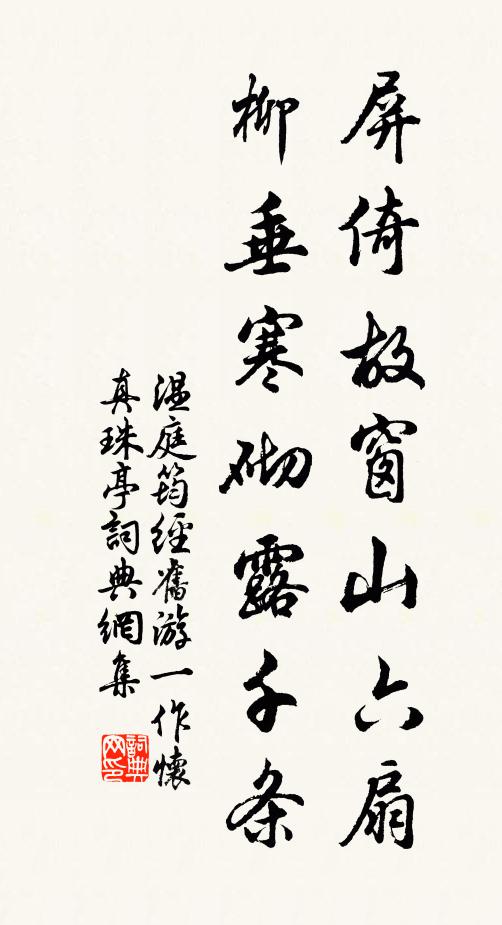 屏倚故窗山六扇
柳垂寒砌露千条
温庭筠經舊游一作懷
真珠亭詞典網集
詞典
网印